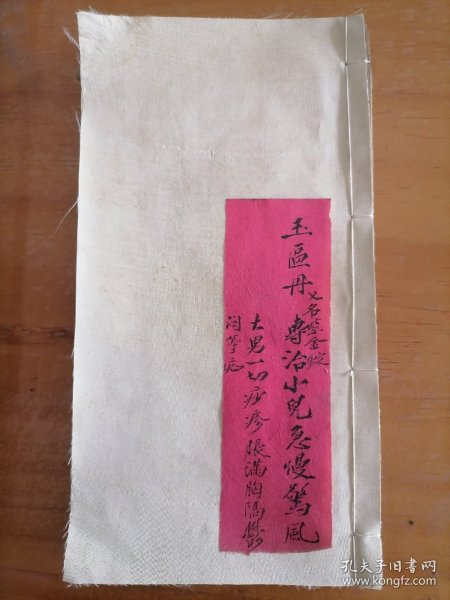 玉區丹又名紫金錠專治小兒急慢驚風
大男一切痧疹脹滿胸隔鬱
闷等症
孔夫子旧书网
www.kongfz.com